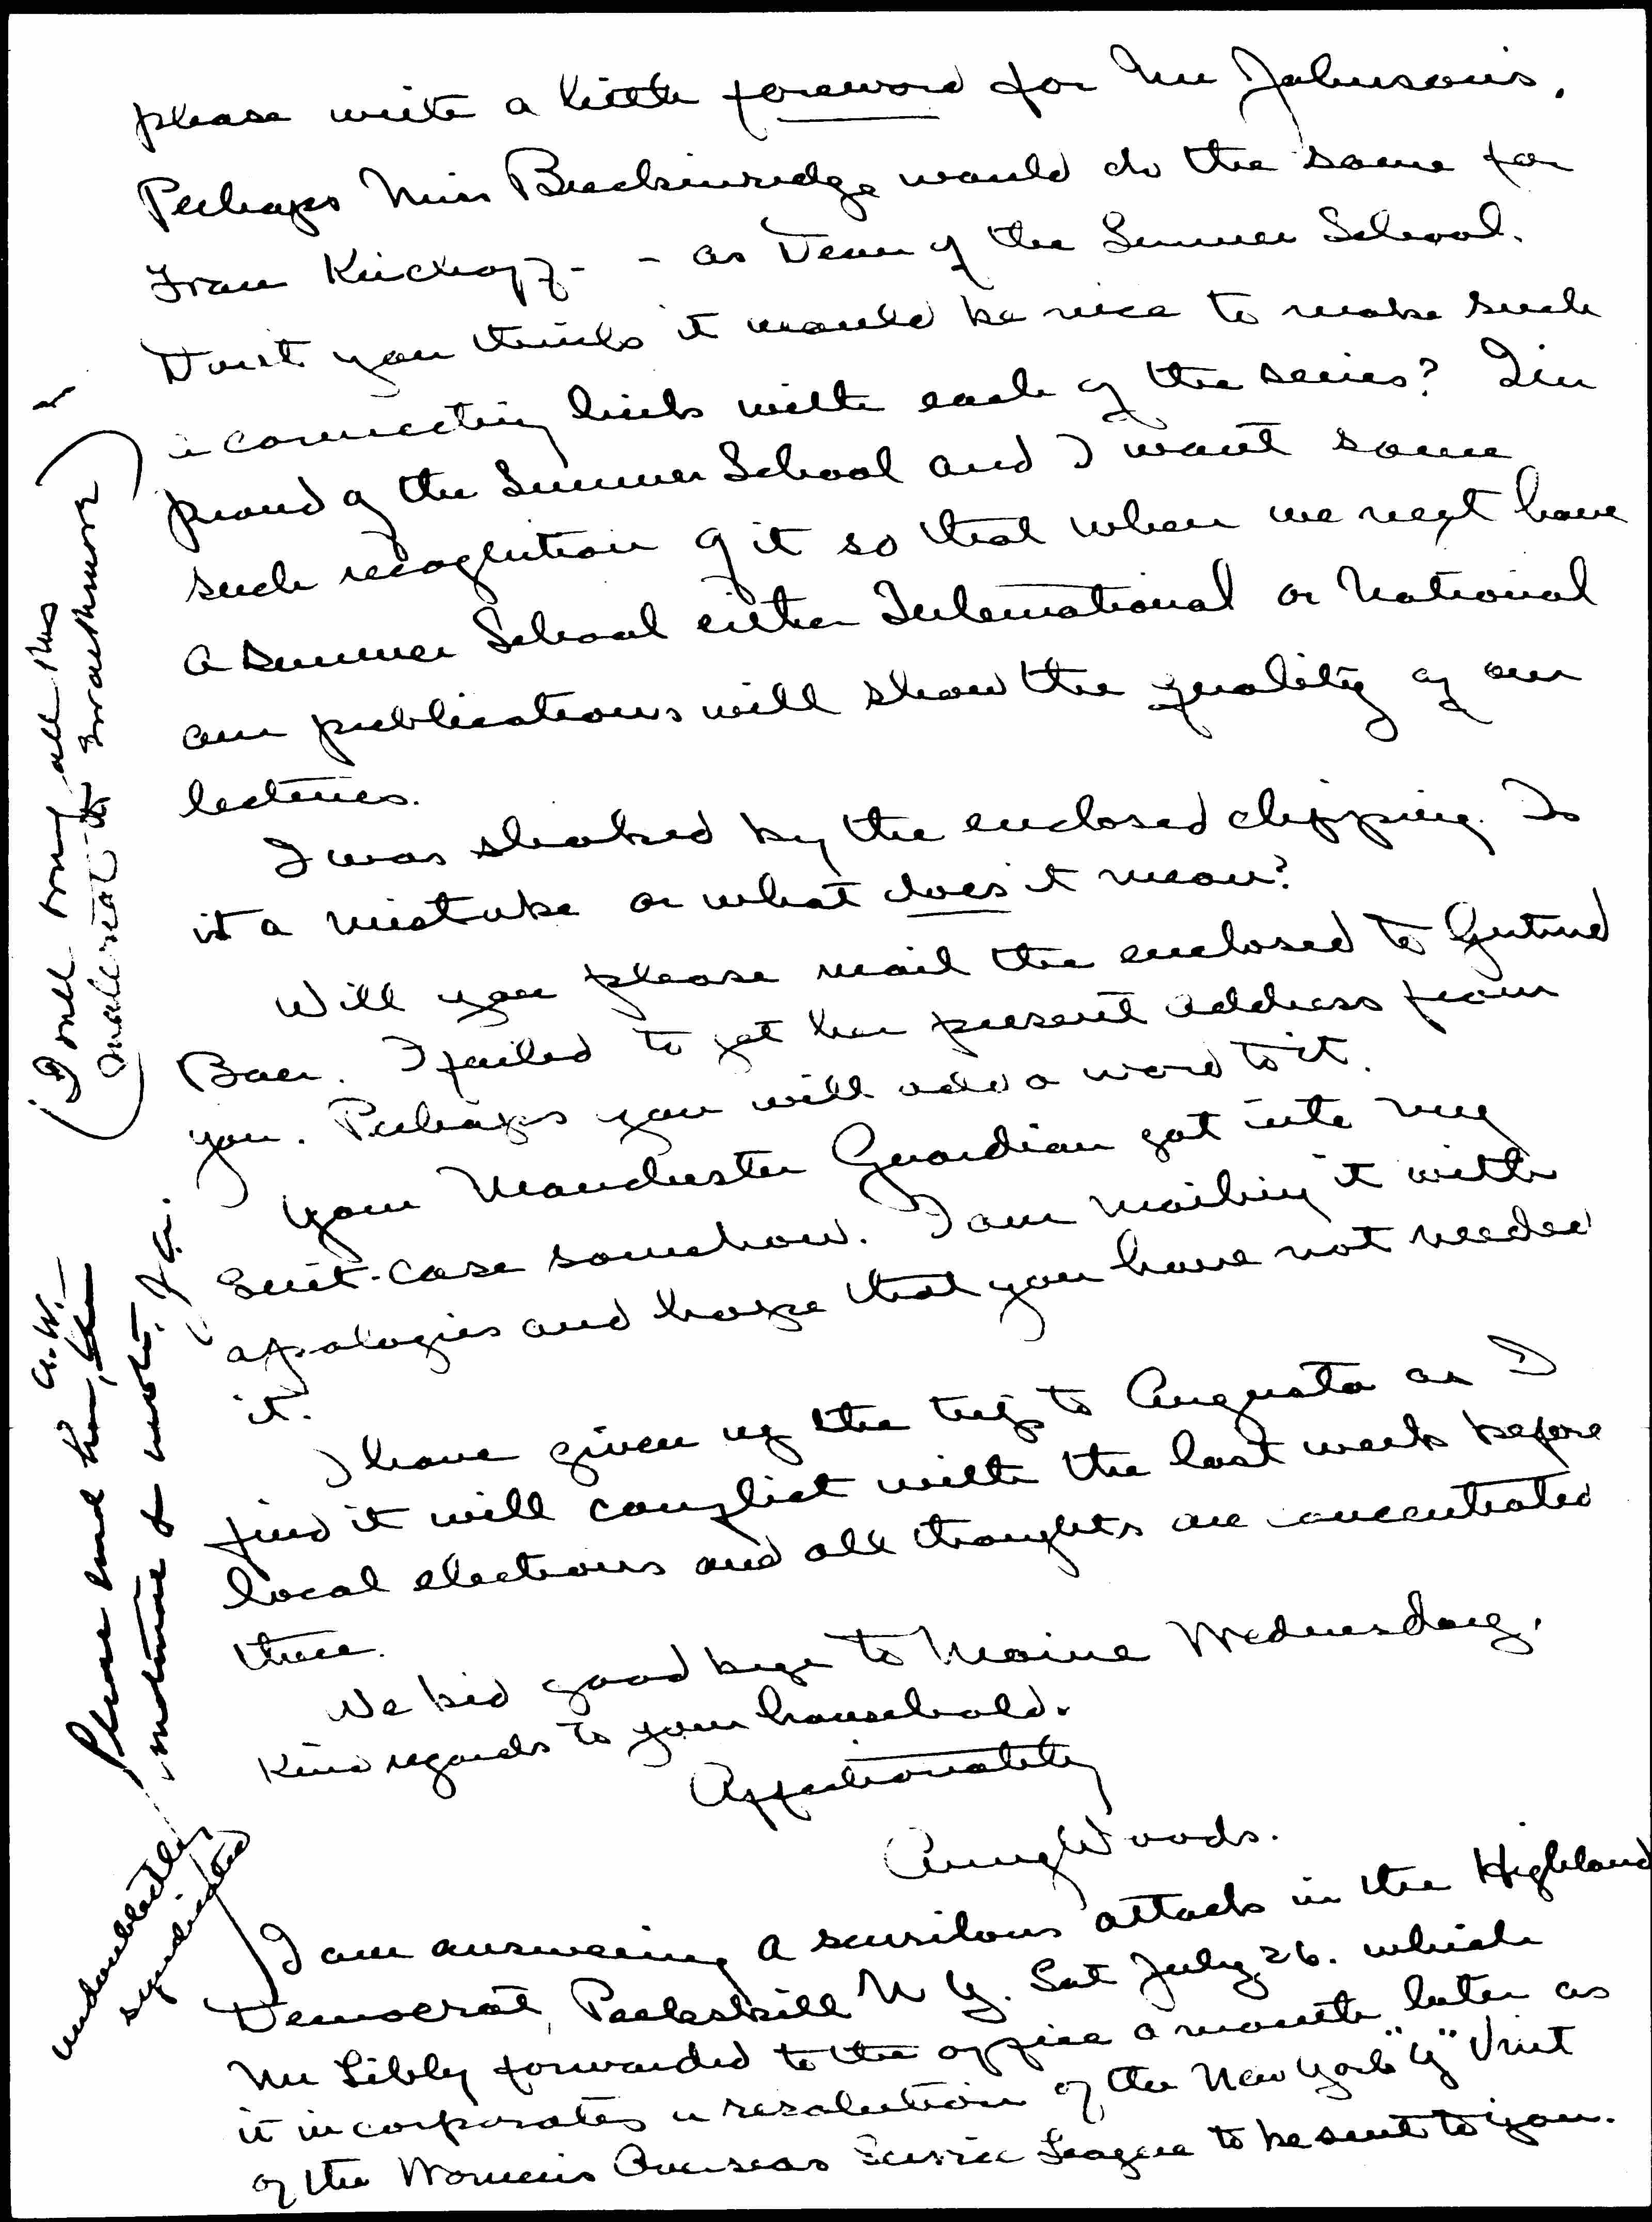 please write a little foreword for Mr Johnson's.
Perhaps Miss Breckinridge would do the same for
Frau Kirchoff - - as Dean of the Summer School.
Don't you think it would be nice to make such
a connecting link with each of the series? I'm
proud of the Summer School and I want some
such recognition of it so that when we next have
a summer School either International or National
our publications will show the quality of our
lectures.
I was shocked by the enclosed clipping. Is
it a mistake or what does it mean?
Will you please mail the enclosed to Gertrud
Baer. I failed to get her present address from
you. Perhaps you will add a word to it.
Your Manchester Guardian got into my
suit-case somehow. I am mailing it with
apologies and hope that you have not needed
it.
I have given up the trip to Augusta as I
find it will conflict with the last week before
local elections and all thoughts are concentrated
there.
We bid good bye to Maine Wednesday.
Kind regards to your household.
Affectionately
Amy Woods.
I am answering a scurilous attack in the Highland
Democrat, Peekskill N Y. Sat July 26. which
Mr Libby forwarded to the office a month later as
it incorporates a resolution of the New York "Y" Unit
of the Women's Overseas Service League to be sent to you.
undoubtedly
syndicated
(I will bring all this
material to Swarthmore)
A.W.
Please send him, the